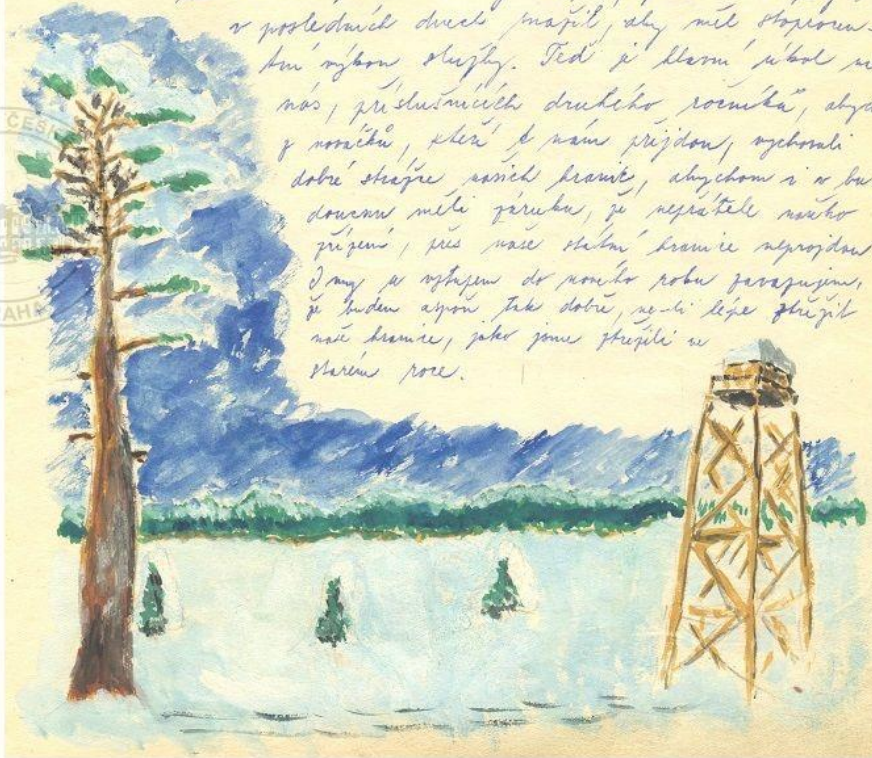 v posledních dnech snažil, aby měl stoprocen-
tní výkon služby. Teď je hlavní úkol na
nás, příslušnících druhého ročníku", abychom
z nováčků, kteří k nám přijdou, vychovali
dobré strážce našich hranic, abychom i v bu
doucnu měli záruku, že nepřátelé našeho
zřízení, přes naše státní hranice neprojdou
I my se vstupem do nového roku zavazujem,
že budem aspoň tak dobře, ne-li lépe střežit
naše hranice, jako jsme střežili ve
starém roce.
ČESK
PRAHA